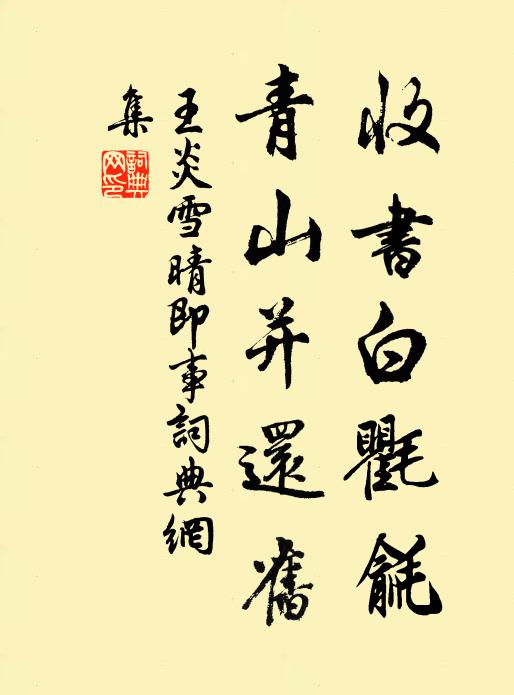 收書白氍毹
青山并還舊
王炎雪晴即事詞典網
集
詞典
网印